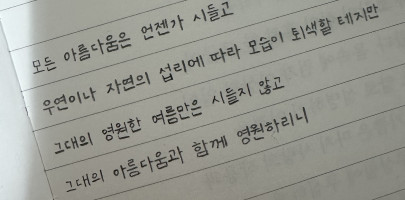 모든 아름다움은 언젠가 시들고
우연이나 자연의 섭리에 따라 모습이 퇴색할 테지만
그대의 영원한 여름만은 시들지 않고
그대의 아름다움과 함께 영원하리니